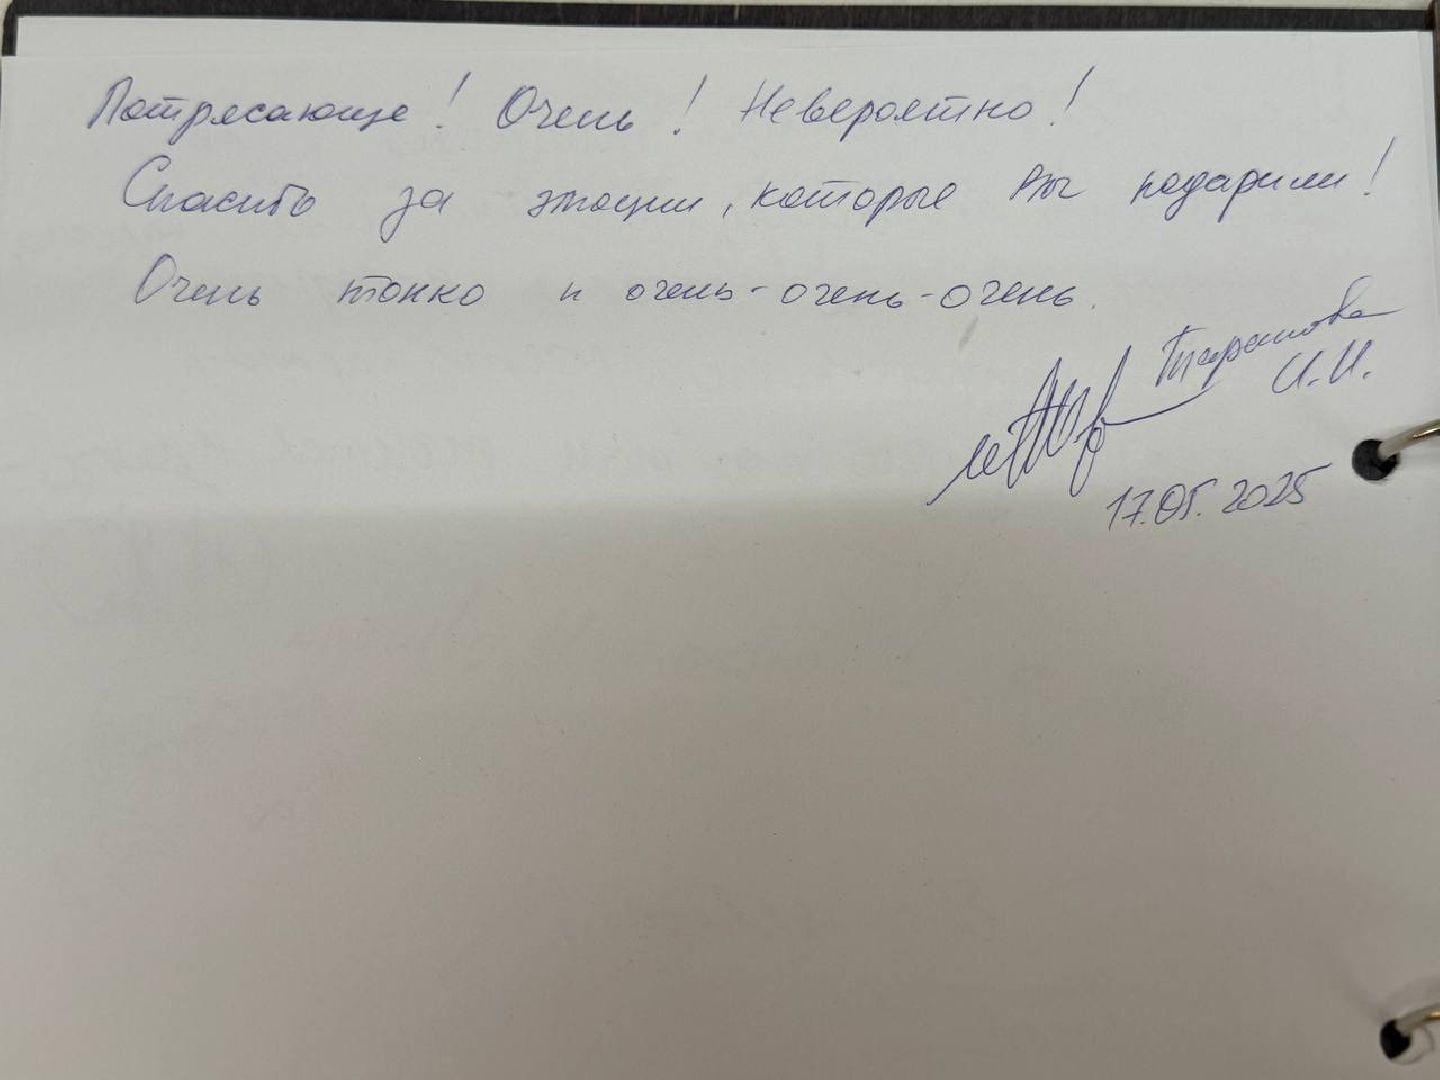 Потрясающе! Очень! Невероятно!
Спасибо за эмоции, которые Вы подарили!
Очень тонко и очень-очень-очень.
И.И.
17.05.2025